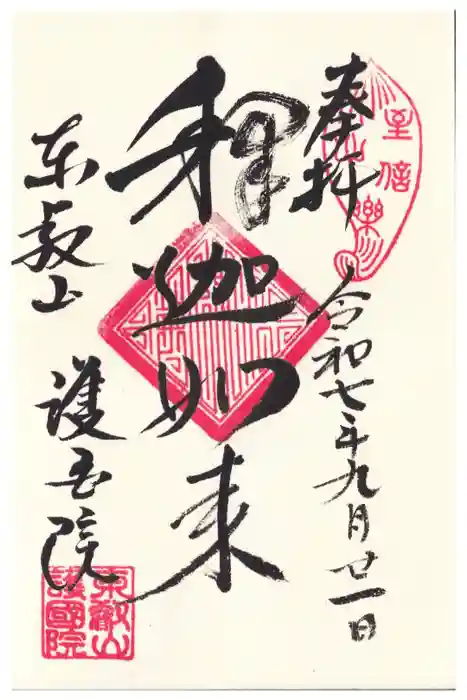 奉拝
至信樂
令和七年九月廿一日
釋迦如来
东叡山
護国院
東叡山
護國院